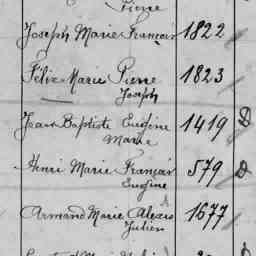 Pierre
Joseph Marie Français 1822
Félix Marie Pierre 1823
Joseph
Jean Baptiste Eugène 1419 D
Marie
Henri Marie Français 579 D
Eugène
Armand Marie Alexis 1677
Julien